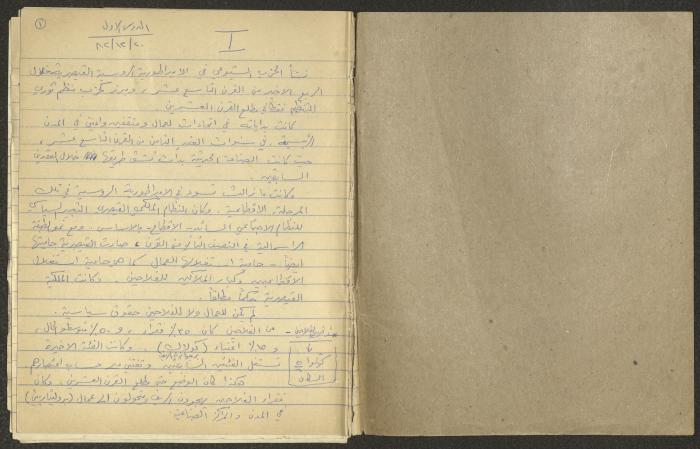 ١
الدرس الأول
٨٢/١٢/٢٠
I
نشأ الحزب الشيوعي في الامبراطورية الروسية القيصرية خلال
الربع الاخير من القرن التاسع عشر، وبرز كحزب منظم ثوري
مطلع القرن العشرين.
كانت بداياته في اتحادات لعمال ومثقفين ولدت في المدن
في سنوات العقد الثامن من القرن التاسع عشر،
حيث كانت الصناعة الحديثة بدأت تشق طريقها خلال العقدين
السابقين.
وكانت ما زالت تسود في الامبراطورية الروسية في تلك
المرحلة، الاقطاعية. وكان النظام الملكي القيصري التعبير السياسي
للنظام الاجتماعي السائد - الاقطاع - بالاساس. ومع نمو
الرأسمالية في النصف الثاني من القرن، صارت القيصرية حاميتها
ايضاً - حامية استغلالها للعمال كما هي حامية استغلال
الاقطاعيين وكبار الملاكين للفلاحين. وكانت الملكية
القيصرية حكماً مطلقاً.
لم يكن للعمال ولا للفلاحين حقوق سياسية.
من الفلاحين كان ٢٥٪ فقراء، و ٥٠٪ متوسطو الحال،
و ١٥٪ اغنياء (كولاك). وكانت الفئة الاخيرة
تستغل الفئتين السابقتين وتغتني على حساب
هكذا كان الوضع حتى مطلع القرن العشرين. وكان
فقراء الفلاحين يهجرون الريف ويتحولون الى عمال (بروليتاريين)
في المدن والمراكز الصناعية.
السكان